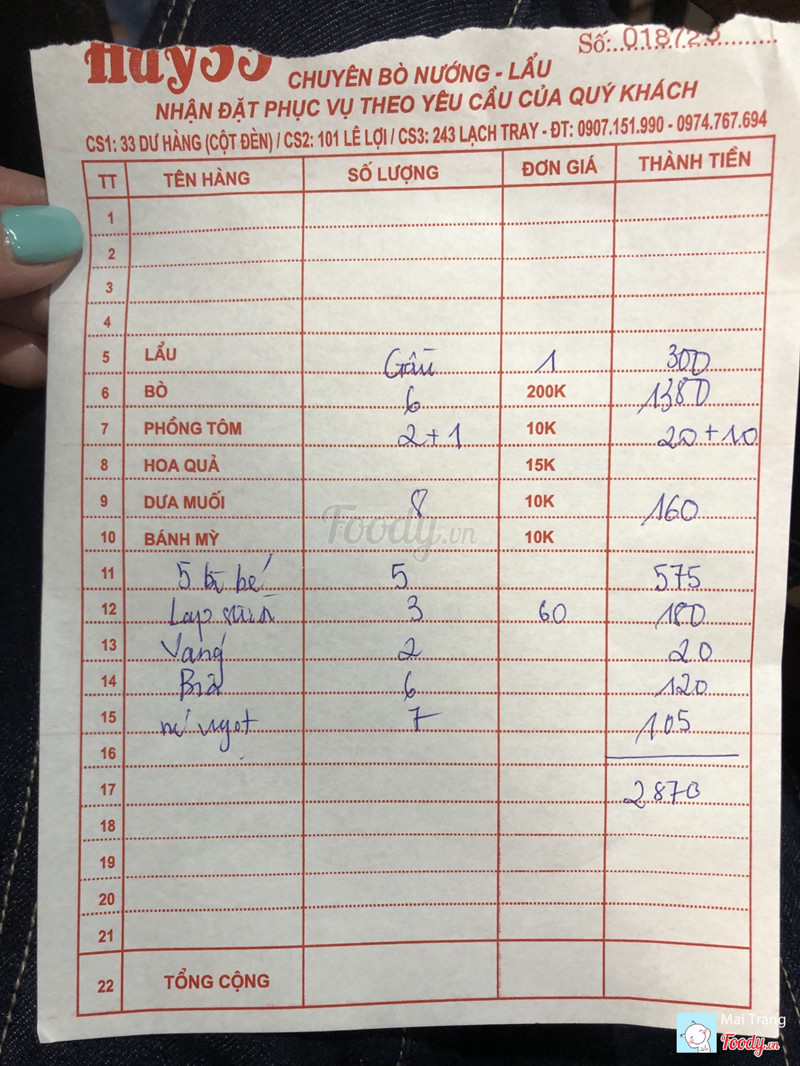 Huy33
Số: 018723
CHUYÊN BÒ NƯỚNG - LẨU
NHẬN ĐẶT PHỤC VỤ THEO YÊU CẦU CỦA QUÝ KHÁCH
CS1: 33 DƯ HÀNG (CỘT ĐÈN) / CS2: 101 LÊ LỢI / CS3: 243 LẠCH TRAY - ĐT: 0907.151.990 - 0974.767.694
TT TÊN HÀNG SỐ LƯỢNG ĐƠN GIÁ THÀNH TIỀN
1
2
3
4
5 LẨU Gầu 1 300
6 BÒ 6 200K 1380
7 PHỒNG TÔM 2+1 10K 20+10
8 HOA QUẢ 15K
9 DƯA MUỐI 8 10K 160
10 BÁNH MỲ 10K
11 5 bò bé 5 575
12 Lap sườn 3 60 180
13 Váng 2 20
14 Bia 6 120
15 nc ngọt 7 105
16
17 2870
18
19
20
21
22 TỔNG CỘNG
Foody.vn
Mai Trang
Foody.vn